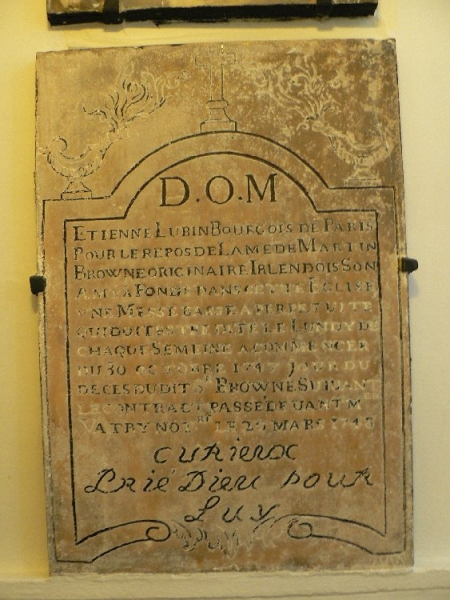 D.O.M
ETIENNE LUBIN BOURGOIS DE PARIS
POUR LE REPOS DE LAME DE MARTIN
BROWNE ORIGINAIRE IRLENDOIS SON
AMI A FONDE DANS CETTE EGLISE
VNE MESSE BASSE A PERPETUITE
QUI DOIT ESTRE DITE LE LUNDY DE
CHAQUE SEMEINE A COMMENCER
DU 30 OCTOBRE 1747 JOUR DU
DECES DUDIT Sr BROWNE SUIVANT
LE CONTRACT PASSÉ DEUANT Me
VATRY NOtre LE 29 MARS
CURIEUX
Prié Dieu pour
Luy